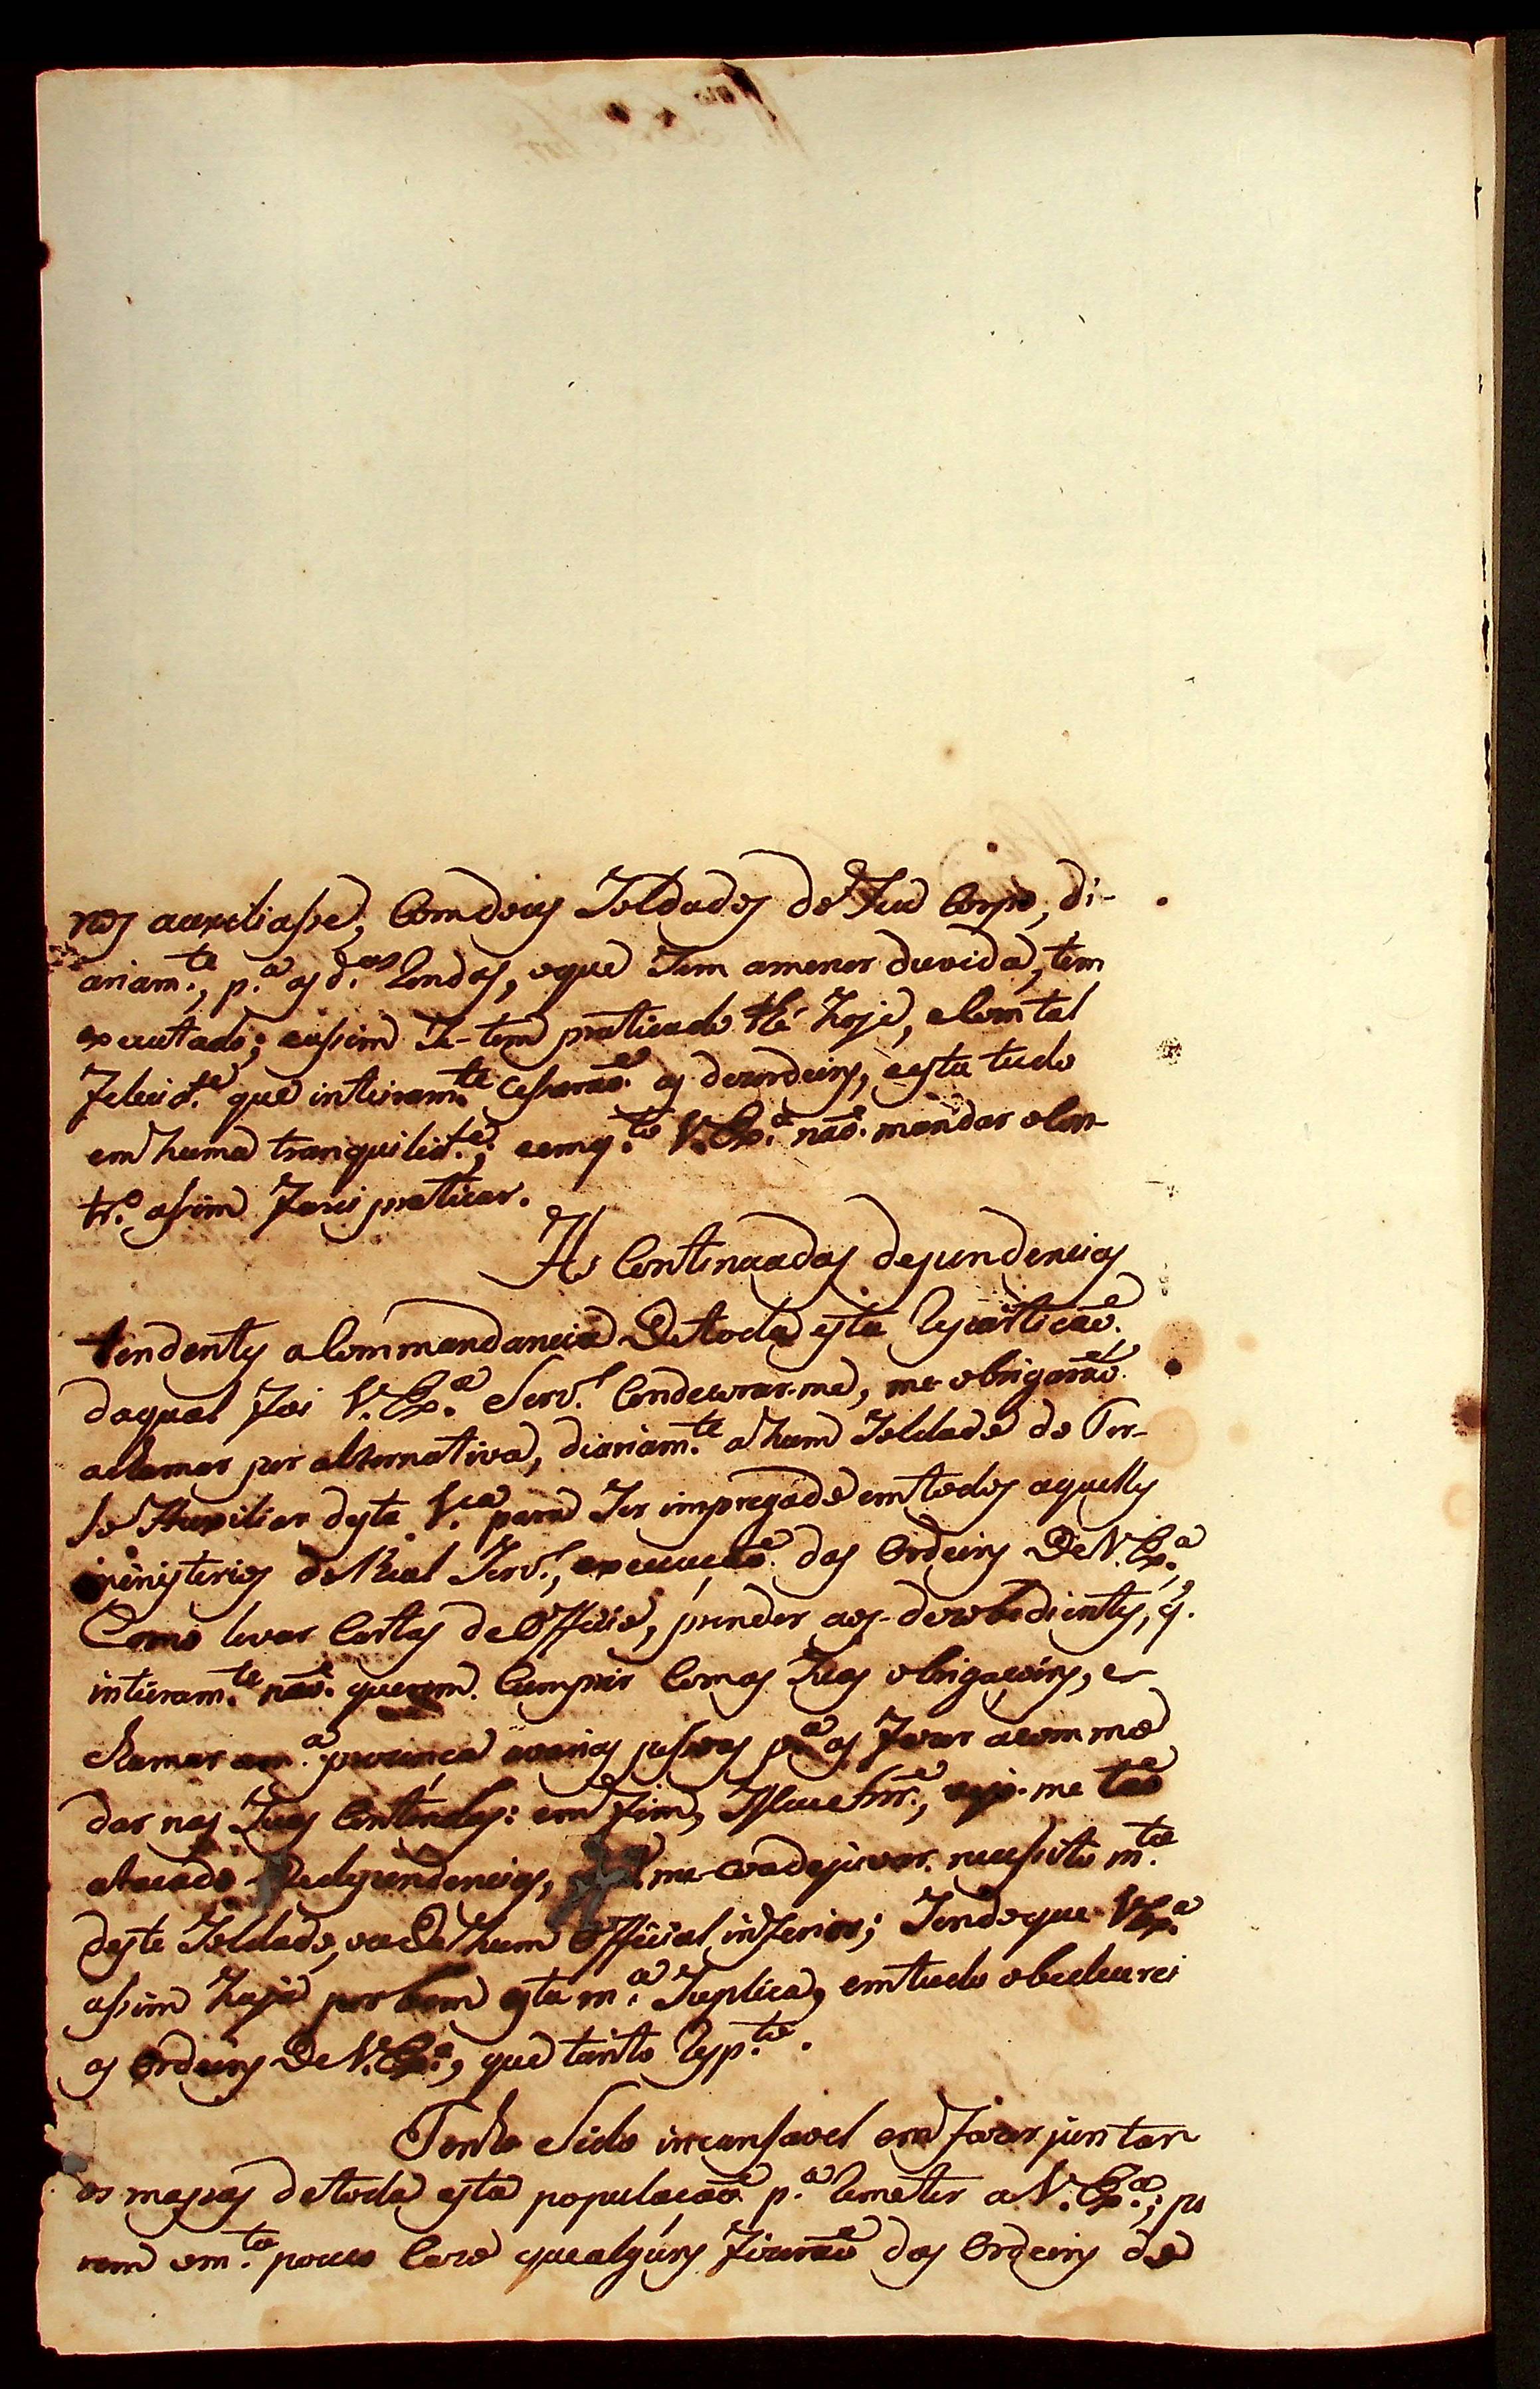 nos auxiliasse, Com dois Soldados do Seu Corpo, di-
ariam.te, p.a as d.as Rondas, oque Sem amenor duvida, tem
executado; eassim Se-tem praticado thé hoje, eCom tal
felicid.e que inteiram.te cessarão as dezordeins, eesta tudo
em huma tranquilid.e; eemq.to V. Ex.a não mandar oCon-
tr.o assim farei praticar.
As Continuadas dependencias
tendentes aCommandancia De toda esta Repartição,
daqual foi V. Ex.a Serv.o Condecorar-me, me-obrigarão
achamar por alternativa, diariam.te ahum Soldado do Ter-
so Auxiliar desta V.ca para Ser impregado emtodos aquelles
menisterios do Real Serv.o, execução das Ordeins De V. Ex.a,
Como levar Cartas deOfficio, prender aos-dezobedientes, q.
inteiram.te não querem Cumprir Comas Suas obrigaçoins, e
chamar am.a prezença avarias pessoas p.a as fazer acommo
dar nas Suas Contendas: em fim, Senhr.e, vejo-me tão
atacado Dedependencias, me-coadejuvar necessito m.to
deste Soldado, ouDe hum Official inferior; Sendoque V. Ex.a
assim haja por bem esta m.a Suplica, emtudo obedecerei
as Ordeins De V. Ex.a, que tanto Resp.to.
Tenho Sido incansavel em fazer juntar
os mapas detoda esta população p.a Remeter a V. Ex.a; po
rem om.to pouco Cazo quealguns fizerão das Ordeins de